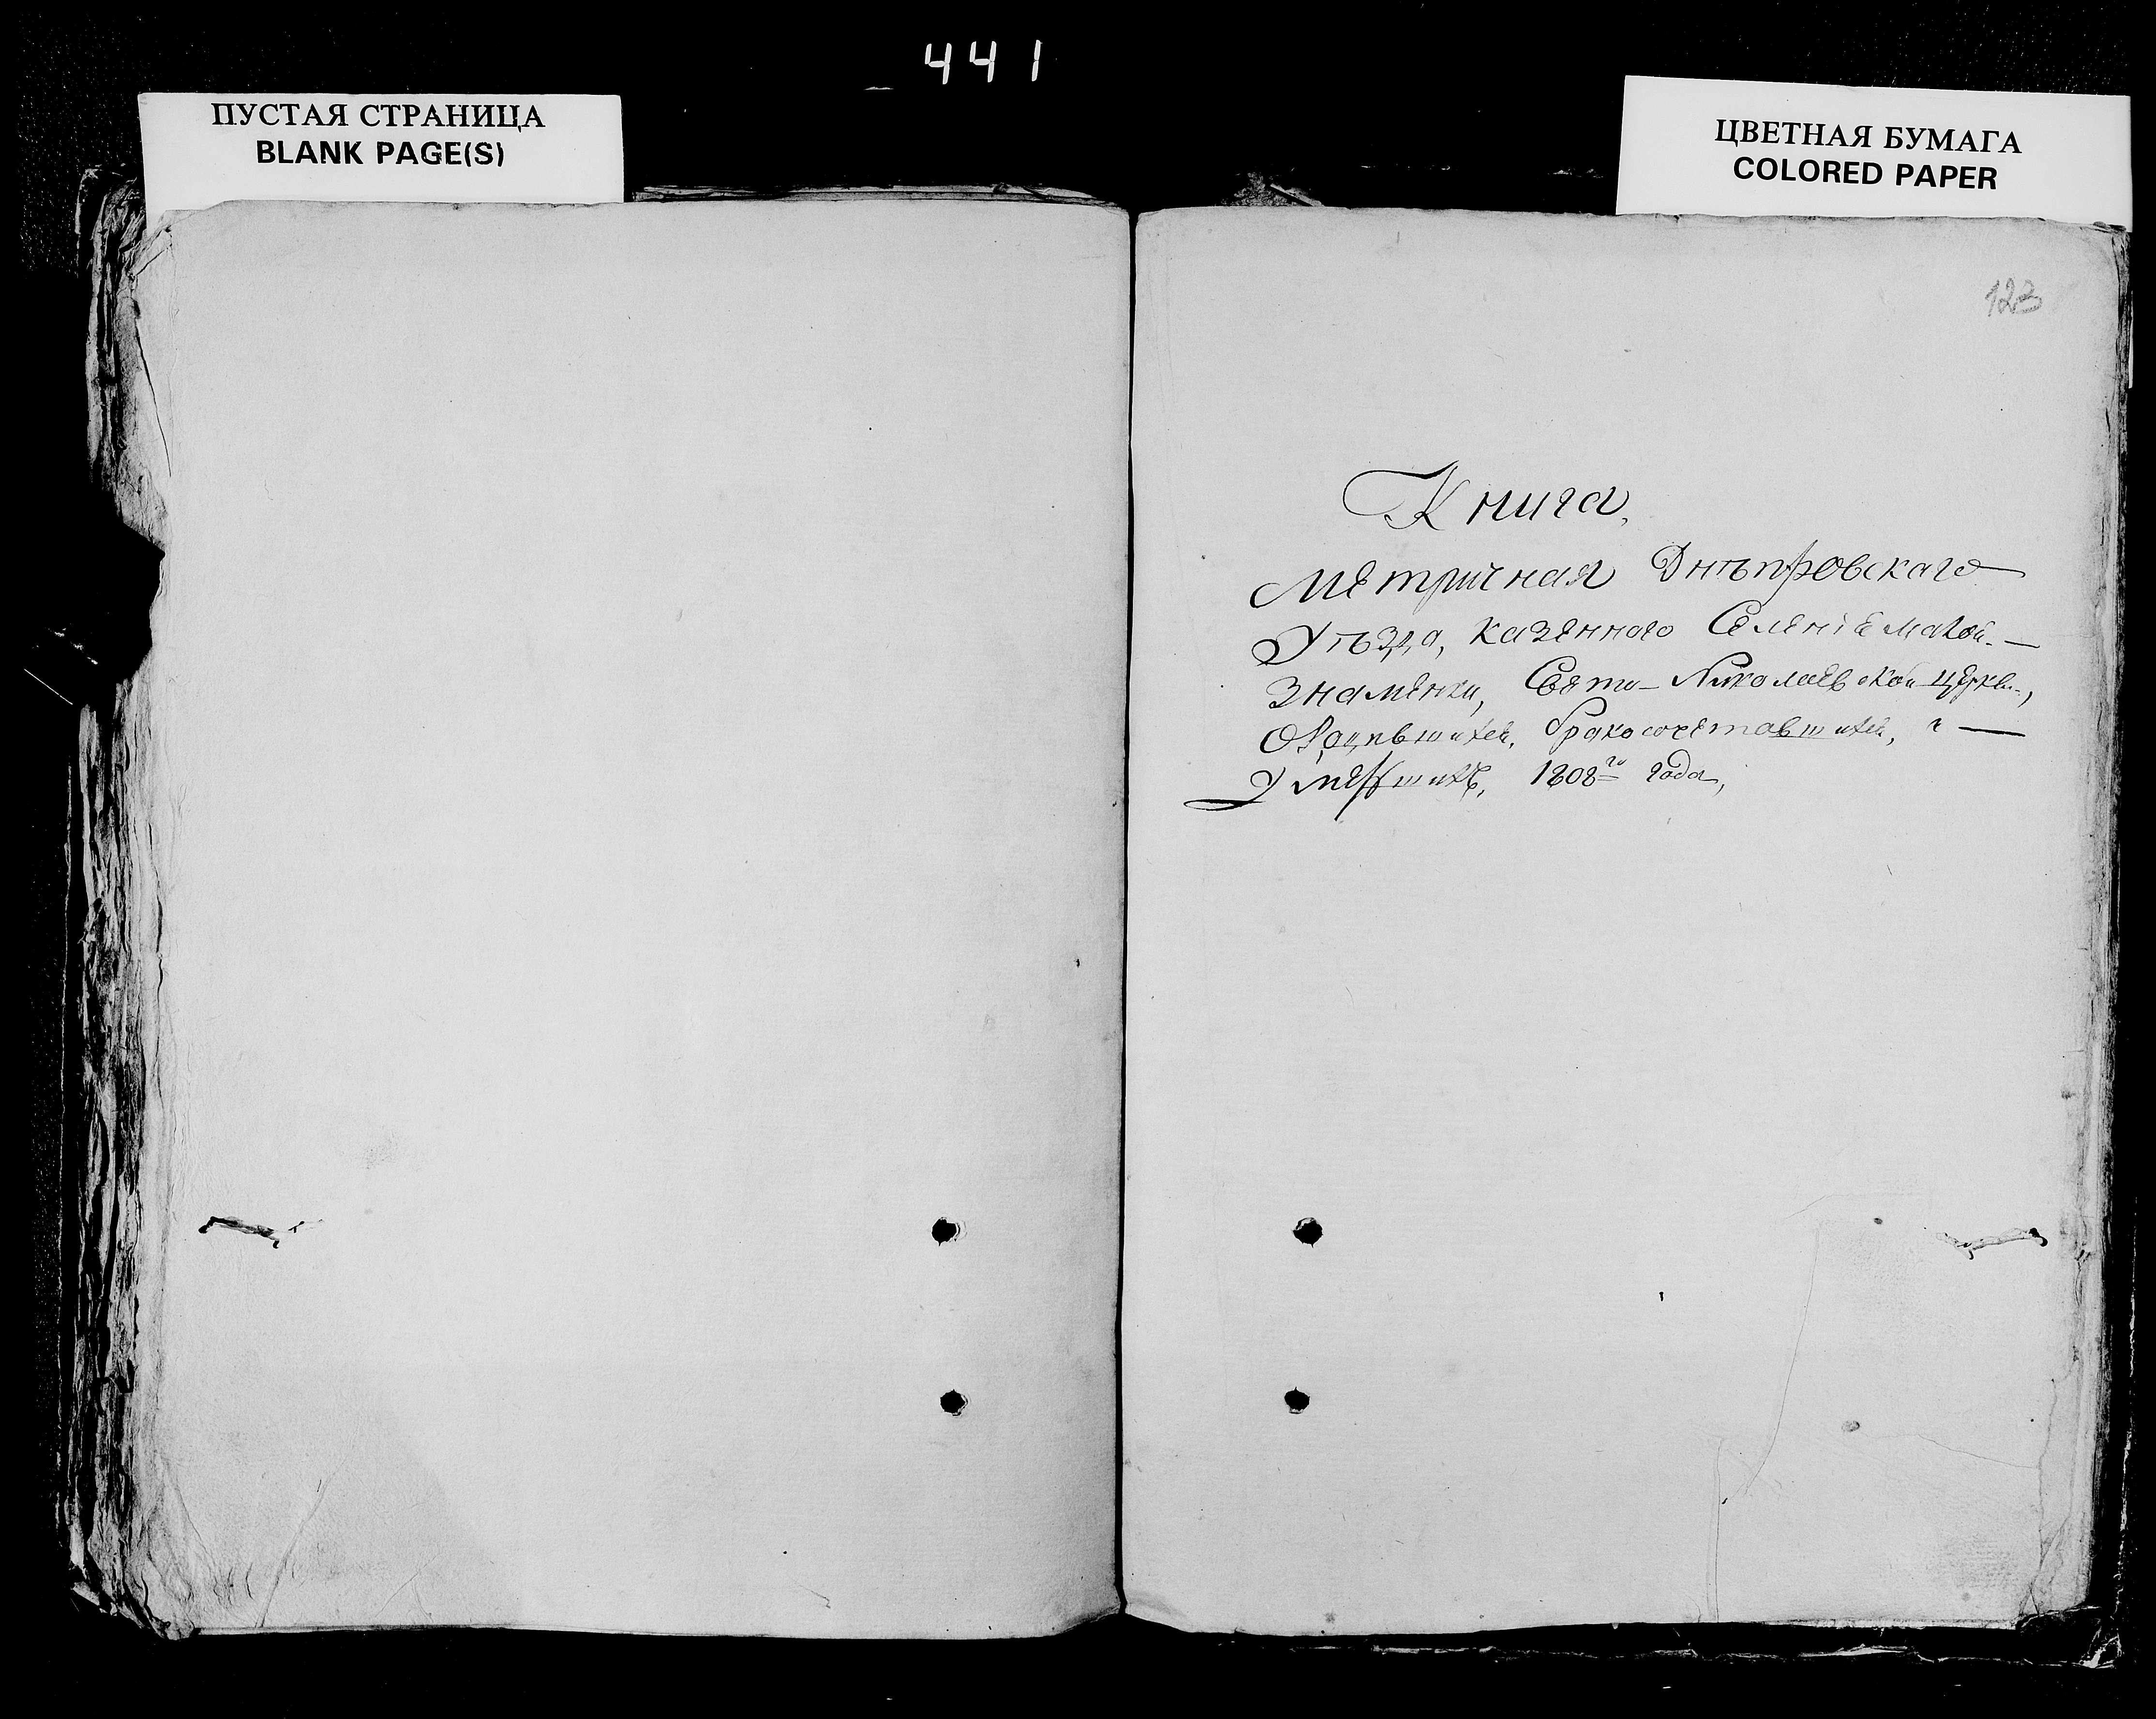 441
ПУСТАЯ СТРАНИЦА
BLANK PAGE(S)
ЦВЕТНАЯ БУМАГА
COLORED PAPER
123
Книга,
Метричная Днѣпровскаго
Уѣзда, казенного Селеніе Малой-
Знаменки, Свято-Николаевской церкви,
О Родившихся, бракосочетавшихся, и
Умершихъ, 1808го года,